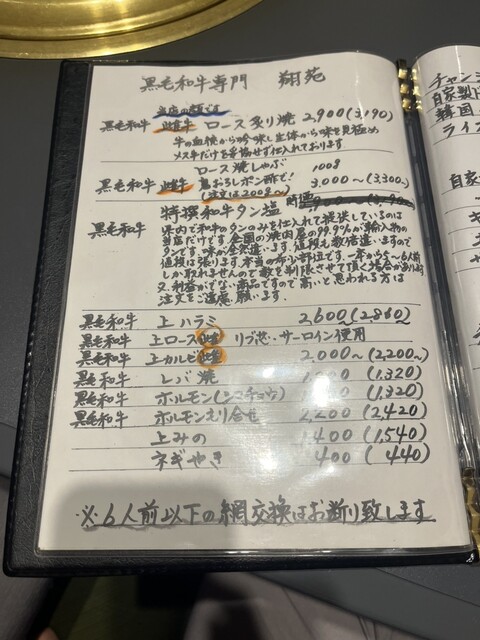 黒毛和牛専門 翔苑
当店の顔です
黒毛和牛 雌牛 ロース炙り焼 2,900(3,190)
牛の血統から吟味し生体から味を見極め
メス牛だけを妥協せず仕入れております
ロース焼しゃぶ 100g
黒毛和牛 雌牛 鬼おろしポン酢で! 3,000〜(3,300〜)
(注文は200g〜)
特撰和牛タン塩 時価
黒毛和牛 県内で和牛のタンのみを仕入れて提供しているのは
当店だけです。全国の焼肉屋の99.9%が輸入物の
タンです。味が全然違います。値段も数倍違いますので
値段は張ります。本当の希少部位です。一本から5〜6人前
しか取れませんので数を制限させて頂く場合があります
又、利益がでない商品ですので高いと思われる方は
注文をご遠慮願います。
黒毛和牛 上ハラミ 2,600〜(2,860〜)
黒毛和牛 上ロース 雌 リブ芯・サーロイン使用
黒毛和牛 上カルビ 雌 2,000〜(2,200〜)
黒毛和牛 レバ焼 (1,320)
黒毛和牛 ホルモン(シマチョウ) (1,320)
黒毛和牛 ホルモンもり合せ 2,200(2,420)
上みの 1,400(1,540)
ネギやき 400(440)
※6人前以下の網交換はお断り致します
チャンジ
自家製
韓国
ライス
自家